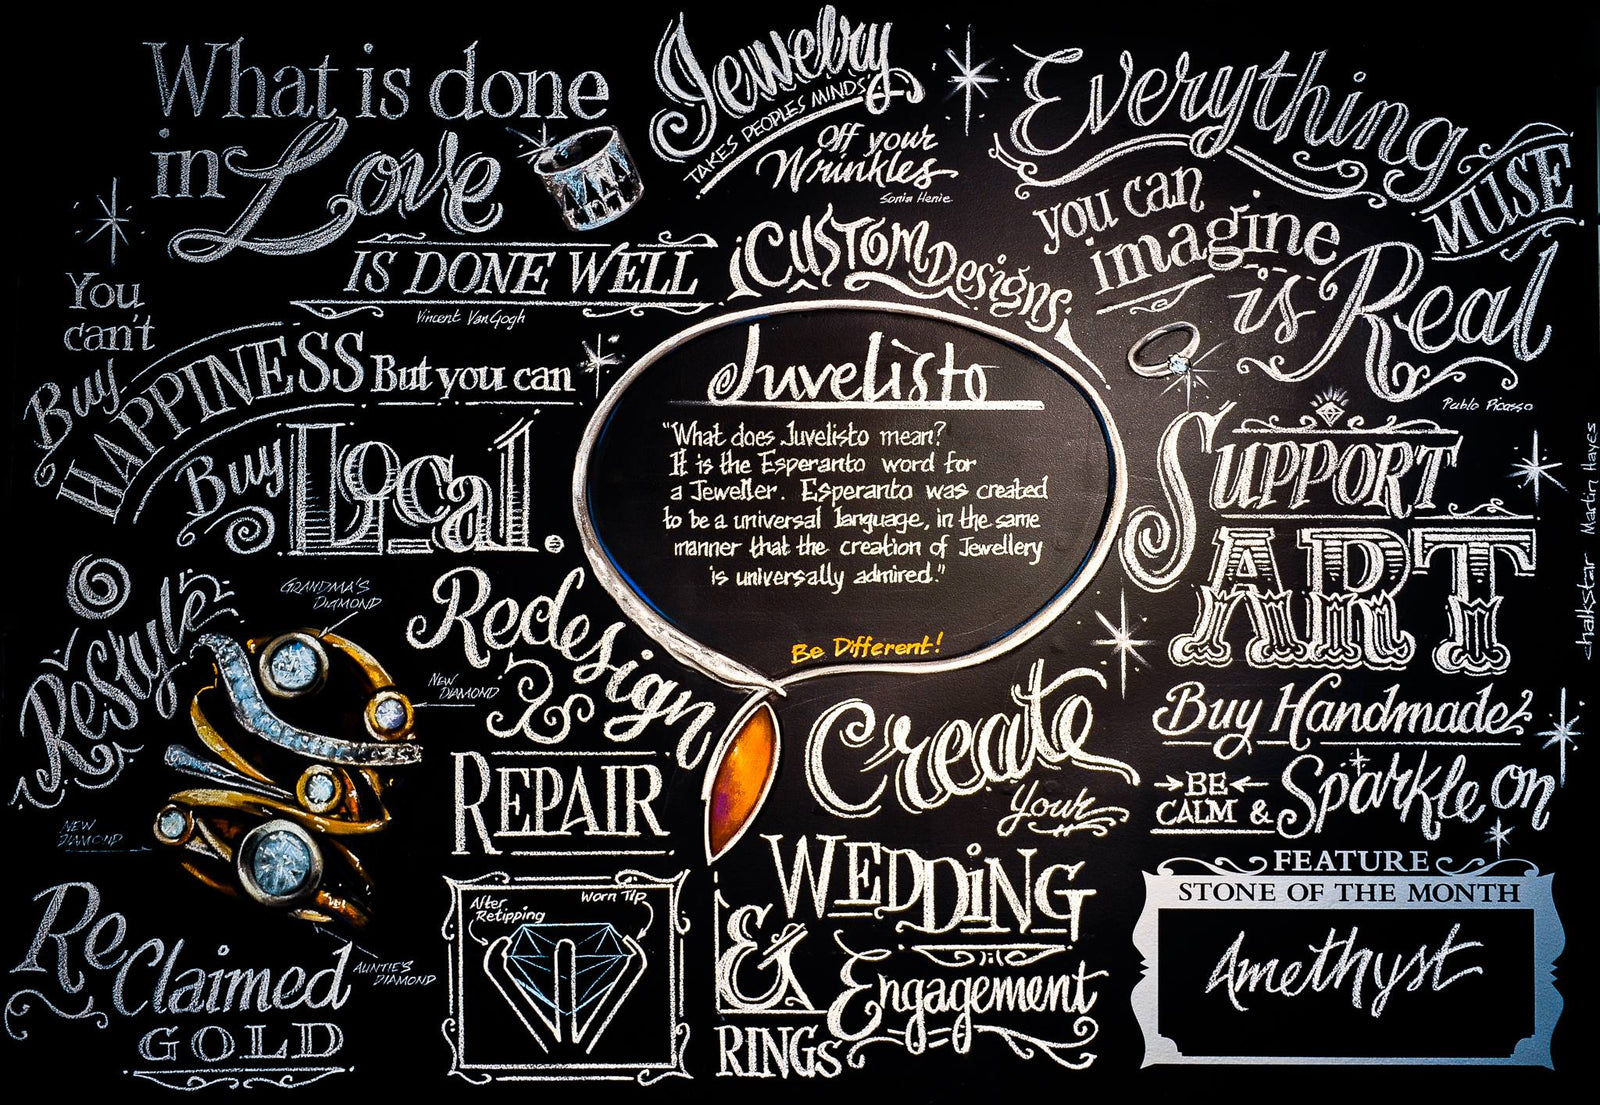 What is done
in Love
IS DONE WELL
Vincent Van Gogh
Jewelry
TAKES PEOPLES MINDS
Off your
Wrinkles
Sonia Henie
Everything
you can
imagine
is Real
Pablo Picasso
MUSE
Custom Designs
You
can't
Buy
HAPPINESS But you can
Buy Local.
Juvelisto
"What does Juvelisto mean?
It is the Esperanto word for
a Jeweller. Esperanto was created
to be a universal language, in the same
manner that the creation of Jewellery
is universally admired."
Be Different!
SUPPORT
ART
Buy Handmade
BE
CALM & Sparkle on
chalkstar Martin Hayes
Restyle
GRANDMA'S
DIAMOND
NEW
DIAMOND
NEW
DIAMOND
AUNTIE'S
DIAMOND
Redesign
REPAIR
After
Retipping
Worn Tip
ReClaimed
GOLD
Create
your
WEDDiNG
& Engagement
RINGS
FEATURE
STONE OF THE MONTH
Amethyst